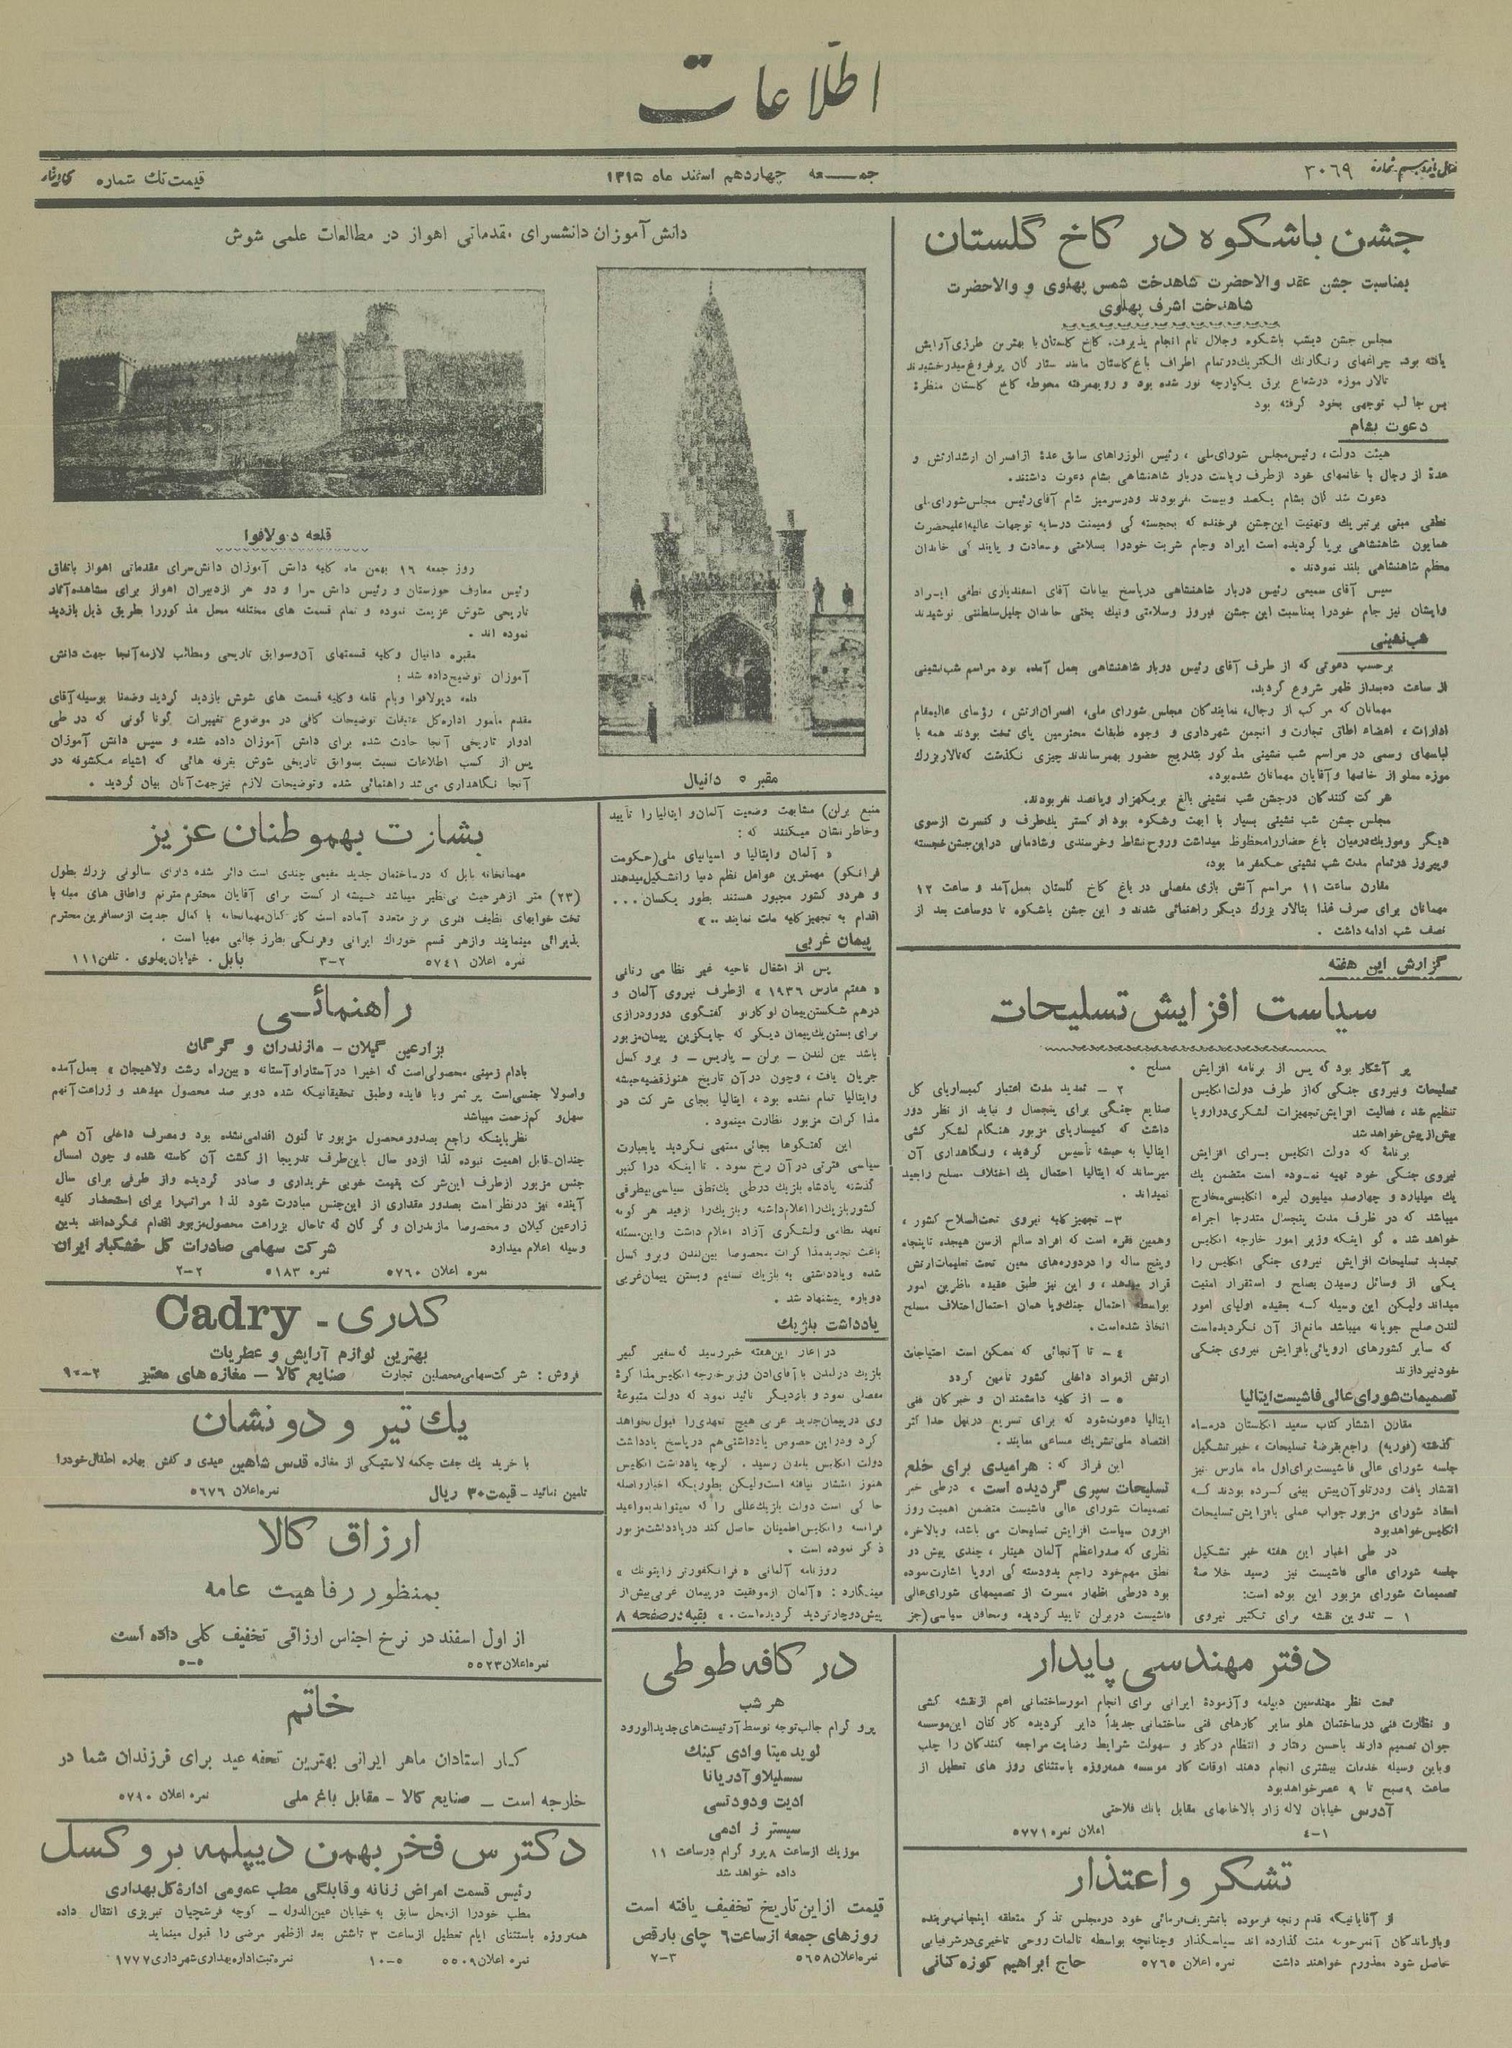 اطلاعات
۳۰۶۹
جمعه چهاردهم اسفند ماه ۱۳۱۵
قیمت تك شماره
جشن باشکوه در کاخ گلستان
بمناسبت جشن عقد والاحضرت شاهدخت شمس پهلوی و والاحضرت
شاهدخت اشرف پهلوی
مجلس جشن دیشب باشکوه وجلال تام انجام پذیرفت. کاخ گلستان با بهترین طرزی آرایش
یافته بود. چراغهای رنگارنك الكتریك درتمام اطراف باغ گلستان مانند ستارگان پرفروغ میدرخشیدند
تالار موزه درشعاع برق یکپارچه نور شده بود و رویهمرفته محوطه کاخ گلستان منظرهٔ
بس جالب توجهی بخود گرفته بود
دعوت بشام
هیئت دولت، رئیس مجلس شورای ملی، رئیس الوزراهای سابق عدهٔ ازافسران ارشدارتش و
عدهٔ از رجال با خانمهای خود ازطرف ریاست دربار شاهنشاهی بشام دعوت داشتند.
دعوت شدگان بشام یکصد وبیست نفر بودند ودرسرمیز شام آقای رئیس مجلس شورای ملی
نطقی مبنی برتبریك وتهنیت این جشن فرخنده که بخجستگی ومیمنت درسایه توجهات عالیه اعلیحضرت
همایون شاهنشاهی برپا گردیده است ایراد وجام شربت خودرا بسلامتی وسعادت و پایندگی خاندان
معظم شاهنشاهی بلند نمودند.
سپس آقای سمیعی رئیس دربار شاهنشاهی درپاسخ بیانات آقای اسفندیاری نطقی ایراد
وایشان نیز جام خودرا بمناسبت این جشن فیروز وسلامتی ونیك بختی خاندان جلیل سلطنتی نوشیدند
شب نشینی
برحسب دعوتی که از طرف آقای رئیس دربار شاهنشاهی بعمل آمده بود مراسم شب نشینی
از ساعت ده بعداز ظهر شروع گردید.
مهمانان که مرکب از رجال، نمایندگان مجلس شورای ملی، افسران ارتش، رؤسای عالیمقام
ادارات، اعضاء اطاق تجارت و انجمن شهرداری و وجوه طبقات محترمین پای تخت بودند همه با
لباسهای رسمی در مراسم شب نشینی مذکور بتدریج حضور بهمرساندند چیزی نگذشت که تالار بزرك
موزه مملو از خانمها وآقایان مهمانان شده بود.
شرکت کنندگان درجشن شب نشینی بالغ بریکهزار وپانصد نفربودند.
مجلس جشن شب نشینی بسیار با ابهت وشکوه بود ارکستر یك طرف و کنسرت ازسوی
دیگر وموزیك درمیان باغ حضاررامحظوظ میداشت وروح نشاط وخرسندی وشادمانی دراین جشن خجسته
وپیروز درتمام مدت شب نشینی حکمفرما بود،
مقارن ساعت ۱۱ مراسم آتش بازی مفصلی در باغ کاخ گلستان بعمل آمد و ساعت ۱۲
مهمانان برای صرف غذا بتالار بزرك دیگر راهنمائی شدند و این جشن باشکوه تا دوساعت بعد از
نصف شب ادامه داشت.
گزارش این هفته
سیاست افزایش تسلیحات
پر آشکار بود که پس از برنامه افزایش
تسلیحات ونیروی جنگی که از طرف دولت انگلیس
تنظیم شد، فعالیت افزایش تجهیزات لشکری دراروپا
بیش از پیش خواهد شد
برنامهٔ که دولت انگلیس برای افزایش
نیروی جنگی خود تهیه نموده است متضمن یك
یك میلیارد و چهارصد میلیون لیره انگلیسی مخارج
میباشد که در ظرف مدت پنجسال متدرجا اجراء
خواهد شد. گو اینکه وزیر امور خارجه انگلیس
تجدید تسلیحات افزایش نیروی جنگی انگلیس را
یکی از وسائل رسیدن بصلح و استقرار امنیت
میداند ولیکن این وسیله که بعقیده اولیای امور
لندن صلح جویانه میباشد مانع از آن نگردیده است
که سایر کشورهای اروپائی بافزایش نیروی جنگی
خود نپردازند
تصمیمات شورای عالی فاشیست ایتالیا
مقارن انتشار کتاب سفید انگلستان درماه
گذشته (فوریه) راجع بقرضهٔ تسلیحات، خبر تشکیل
جلسه شورای عالی فاشیست برای اول ماه مارس نیز
انتشار یافت ودرتلو آن پیش بینی کرده بودند که
انعقاد شورای مزبور جواب عملی بافزایش تسلیحات
انگلیس خواهد بود
در طی اخبار این هفته خبر تشکیل
جلسه شورای عالی فاشیست نیز رسید خلاصهٔ
تصمیمات شورای مزبور این بوده است:
۱ - تدوین نقشه برای تکثیر نیروی
مسلح.
۲ - تمدید مدت اعتبار کمیساریای کل
صنایع جنگی برای پنجسال و نباید از نظر دور
داشت که کمیساریای مزبور هنگام لشکر کشی
ایتالیا به حبشه تأسیس گردید، ونگاهداری آن
میرساند که ایتالیا احتمال یك اختلاف مسلح رابعید
نمیداند.
۳ - تجهیز کلیه نیروی تحت السلاح کشور،
وهمین فقره است که افراد سالم ازسن هیجده تاپنجاه
وپنج ساله را دردوره های معین تحت تعلیمات ارتش
قرار میدهد، و این نیز طبق عقیده ناظرین امور
بواسطه احتمال جنك ویا همان احتمال اختلاف مسلح
اتخاذ شده است.
۴ - تا آنجائی که ممکن است احتیاجات
ارتش ازمواد داخلی کشور تأمین گردد
۵ - از کلیه دانشمندان و خبرگان فنی
ایتالیا دعوت شود که برای تسریع درنیل حداکثر
اقتصاد ملی تشریك مساعی نمایند.
این فراز که: هرامیدی برای خلع
تسلیحات سپری گردیده است، درطی خبر
تصمیمات شورای عالی فاشیست متضمن اهمیت روز
افزون سیاست افزایش تسلیحات می باشد، وبالاخره
نظری که صدراعظم آلمان هیتلر، چندی پیش در
نطق مهم خود راجع بدودستگی اروپا اشارت نموده
بود درطی اظهار مسرت از تصمیمهای شورای عالی
فاشیست دربرلن تایید گردیده ومحافل سیاسی (جز
منبع برلن) مشابهت وضعیت آلمان و ایتالیا را تأیید
وخاطرنشان میکنند که:
« آلمان وایتالیا و اسپانیای ملی (حکومت
فرانکو) مهمترین عوامل نظم دنیا را تشکیل میدهند
و هر دو کشور مجبور هستند بطور یکسان...
اقدام به تجهیز کلیه ملت نمایند..»
پیمان غربی
پس از اشغال ناحیه غیر نظامی رنانی
« هفتم مارس ۱۹۳۶ » ازطرف نیروی آلمان و
درهم شکستن پیمان لوکارنو گفتگوی دورودرازی
برای بستن یك پیمان دیگر که جایگزین پیمان مزبور
باشد بین لندن - برلن - پاریس - و بروکسل
جریان یافت، وچون درآن تاریخ هنوز قضیه حبشه
وایتالیا تمام نشده بود، ایتالیا بجای شرکت در
مذاکرات مزبور نظارت مینمود.
این گفتگوها بجائی منتهی نگردید یا بعبارت
سیاسی فترتی درآن رخ نمود. تا اینکه دراکتبر
گذشته پادشاه بلژیك درطی یك نطق سیاسی بیطرفی
کشور بلژیك را اعلام داشته و بلژیك را ازقید هرگونه
تعهد نظامی ولشکری آزاد اعلام داشت واین مسئله
باعث تجدید مذاکرات مخصوصا بین لندن وبروکسل
شده ویادداشتی به بلژیك تسلیم وبستن پیمان غربی
دوباره پیشنهاد شد.
یادداشت بلژیك
در آغاز این هفته خبر رسید که سفیر کبیر
بلژیك درلندن با آقای ادن وزیرخارجه انگلیس مذاکرهٔ
مفصلی نمود و باردیگر تائید نمود که دولت متبوعهٔ
وی درپیمان جدید غربی هیچ تعهدی را قبول نخواهد
کرد ودراین خصوص یادداشتی هم درپاسخ یادداشت
دولت انگلیس بلندن رسید. گرچه یادداشت انگلیس
هنوز انتشار نیافته است ولیکن بطوریکه اخبارواصله
حاکی است دولت بلژیك عللی را که نمیتواند بمواعید
فرانسه وانگلیس اطمینان حاصل کند دریادداشت مزبور
ذکر نموده است.
روزنامه آلمانی « فرانکفورتر زایتونك »
مینگارد: « آلمان ازموفقیت درپیمان غربی بیش از
پیش دوچار تردید گردیده است. » بقیه در صفحه ۸
دانش آموزان دانشسرای مقدماتی اهواز در مطالعات علمی شوش
مقبره دانیال
قلعه دیولافوا
روز جمعه ۱۶ بهمن ماه کلیه دانش آموزان دانش سرای مقدماتی اهواز باتفاق
رئیس معارف خوزستان و رئیس دانش سرا و دو نفر ازدبیران اهواز برای مشاهده آثار
تاریخی شوش عزیمت نموده و تمام قسمت های مختلفه محل مذکوررا طریق ذیل بازدید
نموده اند.
مقبره دانیال وکلیه قسمتهای آن وسوابق تاریخی ومطالب لازمه آنجا جهت دانش
آموزان توضیح داده شد؛
قلعه دیولافوا وبام قلعه وکلیه قسمت های شوش بازدید گردید وضمنا بوسیله آقای
مقدم مأمور اداره کل عتیقات توضیحات کافی در موضوع تغییرات گوناگونی که در طی
ادوار تاریخی آنجا حادث شده برای دانش آموزان داده شده و سپس دانش آموزان
پس از کسب اطلاعات نسبت بسوابق تاریخی شوش بغرفه هائی که اشیاء مکشوفه در
آنجا نگاهداری می شد راهنمائی شده وتوضیحات لازم نیز جهت آنان بیان گردید.
بشارت بهموطنان عزیز
مهمانخانه بابل که درساختمان جدید مقیمی چندی است دائر شده دارای سالونی بزرك بطول
(۲۳) متر ازهرحیث بی نظیر میباشد برای آقایان محترم مترنم واطاق های مبله با
تخت خوابهای نظیف فنری برنز متعدد آماده است کارکنان مهمانخانه با کمال جدیت ازمسافرین محترم
پذیرائی مینمایند وازهر قسم خوراك ایرانی وفرنگی بطرز جالبی مهیا است.
نمره اعلان ۵۷۴۱ ۳-۲ بابل. خیابان پهلوی. تلفن ۱۱۱
راهنمائی
بزارعین گیلان - مازندران و گرگان
بادام زمینی محصولی است که اخیرا درآستارا وآستانه « بین راه رشت ولاهیجان » بعمل آمده
واصولا جنسی است پر ثمر وبا فایده وطبق تحقیقاتیکه شده دوبر صد محصول میدهد و زراعت آنهم
سهل و کم زحمت میباشد
نظر باینکه راجع بصدور محصول مزبور تا کنون اقدامی نشده بود ومصرف داخلی آن هم
چندان قابل اهمیت نبوده لذا ازدو سال باین طرف تدریجا از کشت آن کاسته شده و چون امسال
جنس مزبور ازطرف این شرکت بقیمت خوبی خریداری و صادر گردیده واز طرفی برای سال
آینده نیز درنظر است بصدور مقداری از این جنس مبادرت شود لذا مراتب را برای استحضار کلیه
زارعین گیلان و مخصوصا مازندران و گرگان که تاحال بزراعت محصول مزبور اقدام نکرده اند بدین
وسیله اعلام میدارد شرکت سهامی صادرات کل خشکبار ایران
نمره اعلان ۵۷۶۰ نمره ۵۱۸۳ ۲-۲
کدری - Cadry
بهترین لوازم آرایش و عطریات
فروش: شرکت سهامی محصلین تجارت صنایع کالا - مغازه های معتبر ۲-۹۰
یك تیر و دو نشان
با خرید یك جفت چکمه لاستیکی از مغازه قدس شاهین عیدی و کفش بهاره اطفال خودرا
تامین نمائید - قیمت ۳۰ ریال نمره اعلان ۵۶۷۶
ارزاق کالا
بمنظور رفاهیت عامه
از اول اسفند در نرخ اجناس ارزاقی تخفیف کلی داده است
نمره اعلان ۵۵۲۳ ۵-۵
خاتم
کار استادان ماهر ایرانی بهترین تحفه عید برای فرزندان شما در
خارجه است - صنایع کالا - مقابل باغ ملی نمره اعلان ۵۷۹۰
دکتر س فخر بهمن دیپلمه بروکسل
رئیس قسمت امراض زنانه وقابلگی مطب عمومی اداره کل بهداری
مطب خودرا ازمحل سابق به خیابان عین الدوله - کوچه فرشچیان تبریزی انتقال داده
همه روزه باستثنای ایام تعطیل ازساعت ۳ تاشش بعد ازظهر مرضی را قبول مینماید
نمره اعلان ۵۵۰۹ ۵-۱۰ نمره ثبت اداره بهداری شهرداری ۱۷۷۷
در کافه طوطی
هر شب
پروگرام جالب توجه توسط آرتیست های جدیدالورود
لوید میتا وادی کینك
سسلیلا و آدریانا
ادیت ودودتسی
سیسترز ادمی
موزیك ازساعت ۸ پروگرام درساعت ۱۱
داده خواهد شد
قیمت ازاین تاریخ تخفیف یافته است
روزهای جمعه ازساعت ۶ چای بارقص
نمره اعلان ۵۶۵۸ ۳-۷
دفتر مهندسی پایدار
تحت نظر مهندسین دیپلمه وآزمودهٔ ایرانی برای انجام امور ساختمانی اعم ازنقشه کشی
و نظارت فنی درساختمان هاو سایر کارهای فنی ساختمانی جدیداً دایر گردیده کارکنان این موسسه
جوان تصمیم دارند باحسن رفتار و انتظام درکار و سهولت شرایط رضایت مراجعه کنندگان را جلب
وباین وسیله خدمات بیشتری انجام دهند اوقات کار موسسه همه روزه باستثنای روز های تعطیل از
ساعت ۹ صبح تا ۹ عصر خواهد بود
آدرس خیابان لاله زار بالاخانهای مقابل بانك فلاحتی
۱-۴ اعلان نمره ۵۷۷۱
تشکر و اعتذار
از آقایانیکه قدم رنجه فرموده باتشریف فرمائی خود درمجلس تذکر متعلقه اینجانب بربنده
وبازماندگان آنمرحومه منت گذارده اند سپاسگذار وچنانچه بواسطه تالمات روحی تاخیری درشرفیابی
حاصل شود معذورم خواهند داشت نمره اعلان ۵۷۶۵ حاج ابراهیم کوزه کنانی